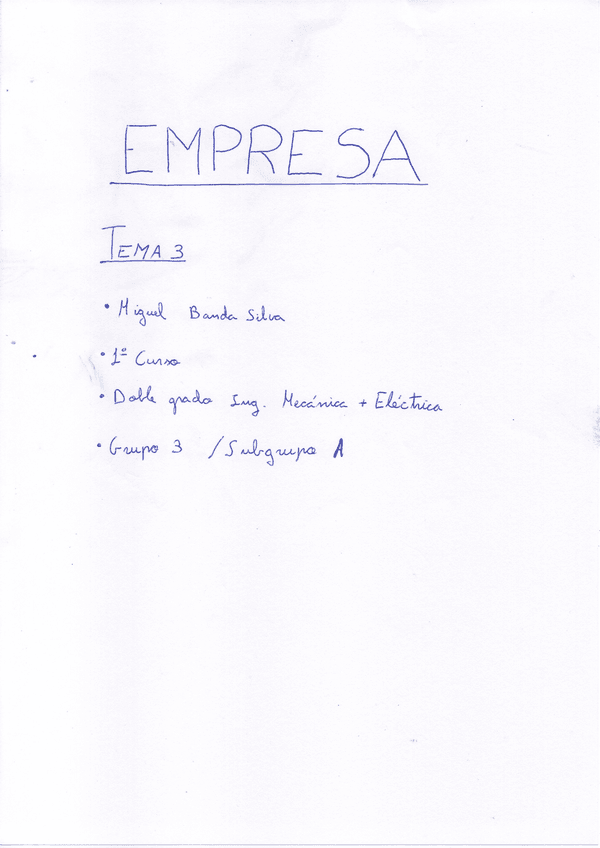 EMPRESA
TEMA 3
• Miguel Banda Silva
• 1º Curso
• Doble grado Ing. Mecánica + Eléctrica
• Grupo 3 / Subgrupo A